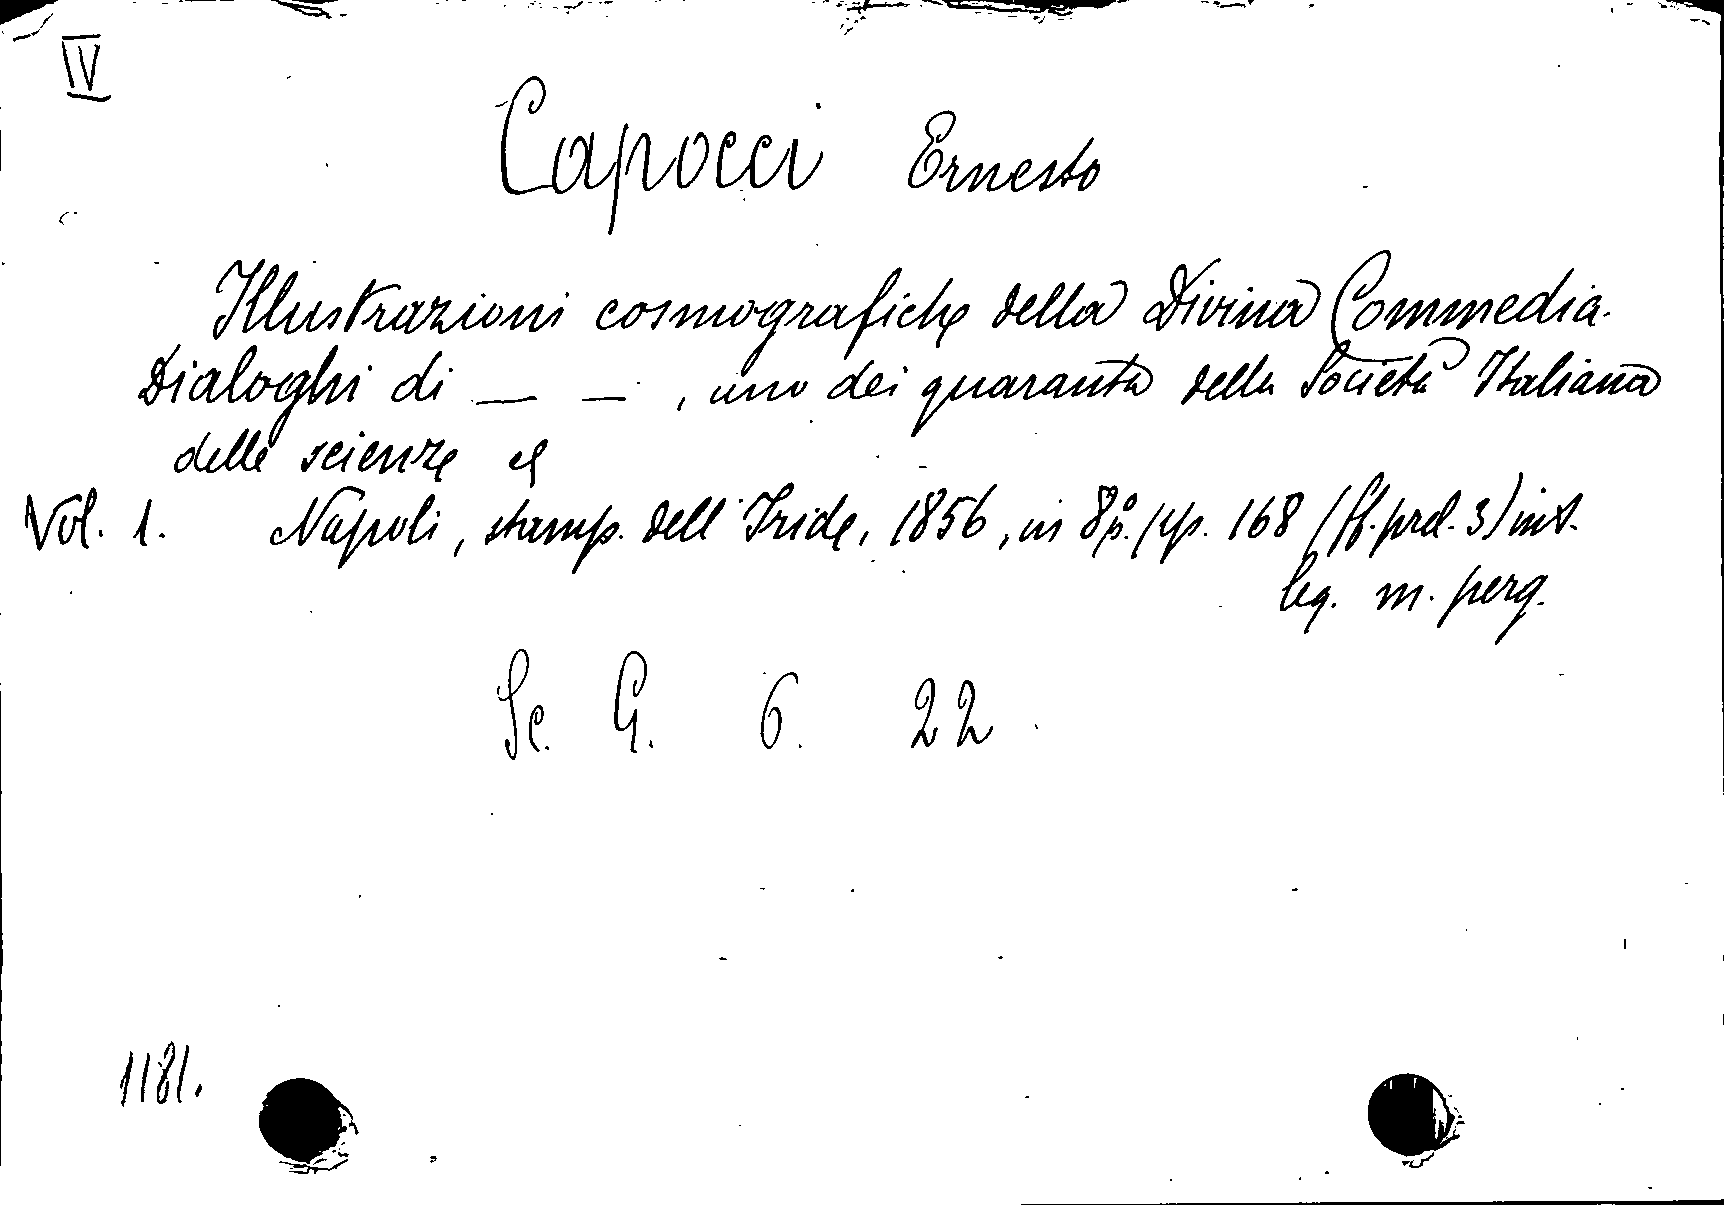 IV
Capocci Ernesto
Illustrazioni cosmografiche della Divina Commedia.
Dialoghi di — — , uno dei quaranta della Società Italiana
delle scienze
Vol. 1. Napoli, stamp. dell'Iride, 1856, in 8° p. pp. 168 (ff. prel. 3) int.
leg. m. perg.
Sc. G. 6. 22.
1181.